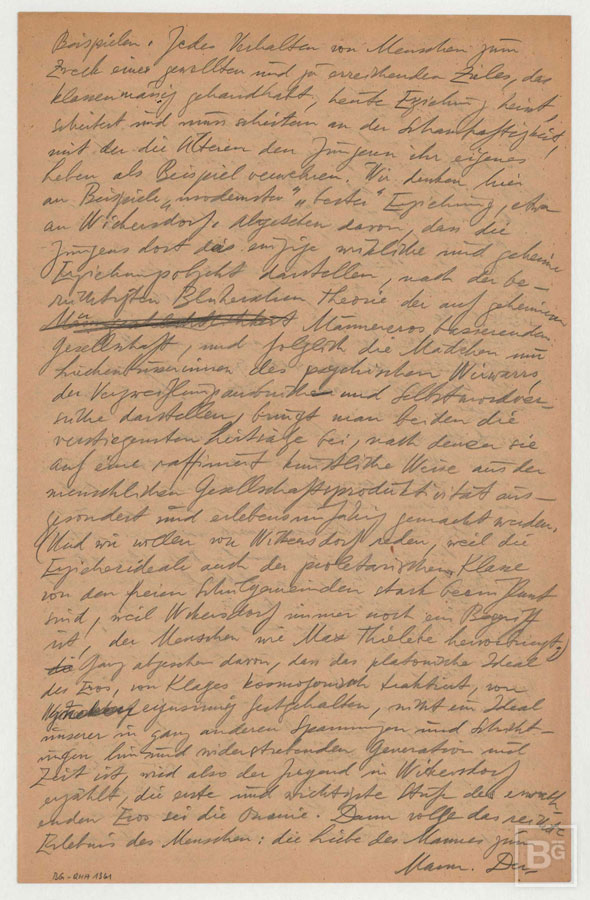 Beispielen. Jedes Verhalten von Menschen zum
Zweck eines gewollten und zu erreichenden Zieles, das
klassenmässig gehandhabt, heute Erziehung heisst,
scheitert und muss scheitern an der Schamhaftigkeit,
mit der die Älteren den Jüngeren ihr eigenes
Leben als Beispiel verwehren. Wir denken hier
an Beispiele „modernster" „bester" Erziehung, etwa
an Wickersdorf. Abgesehen davon, dass die
Jungens dort das einzige wirkliche und geheime
Erziehungsobjekt darstellen, nach der be-
rücktigten Blüherschen Theorie der auf geheimem
Männereros basierenden
Gesellschaft, und folglich die Mädchen nur
des psychischen Wirwarrs,
der Verzweiflungsausbrüche und Selbstmordver-
suche darstellen, bringt man beiden die
verstiegensten Beiträge bei, nach denen sie
auf eine raffiniert künstliche Weise aus der
menschlichen Gesellschaftsproduktivität aus-
gesondert und erlebensunfähig gemacht werden.
(Und wir wollen von Wickersdorf reden, weil die
Erzieherideale auch der proletarischen Klasse
von den freien Schulgemeinden stark beeinflusst
sind, weil Wickersdorf immer noch ein Begriff
ist, der Menschen wie Max hervorbringt.)
Ganz abgesehen davon, dass das platonische Ideal
des Eros, von Klages kosmogonisch traktiert, von
festgehalten, nicht ein Ideal
unserer in ganz anderen Spannungen und Schicht-
ungen hin und widerstrebenden Generation und
Zeit ist, wird also der Jugend in Wickersdorf
erzählt, die erste und wichtigste Stufe des erwach-
enden Eros sei die Onanie. Dann folge das reifste
Erlebnis des Menschen: die Liebe des Mannes zum
Mann. Der
BG-RHA 1361
BG